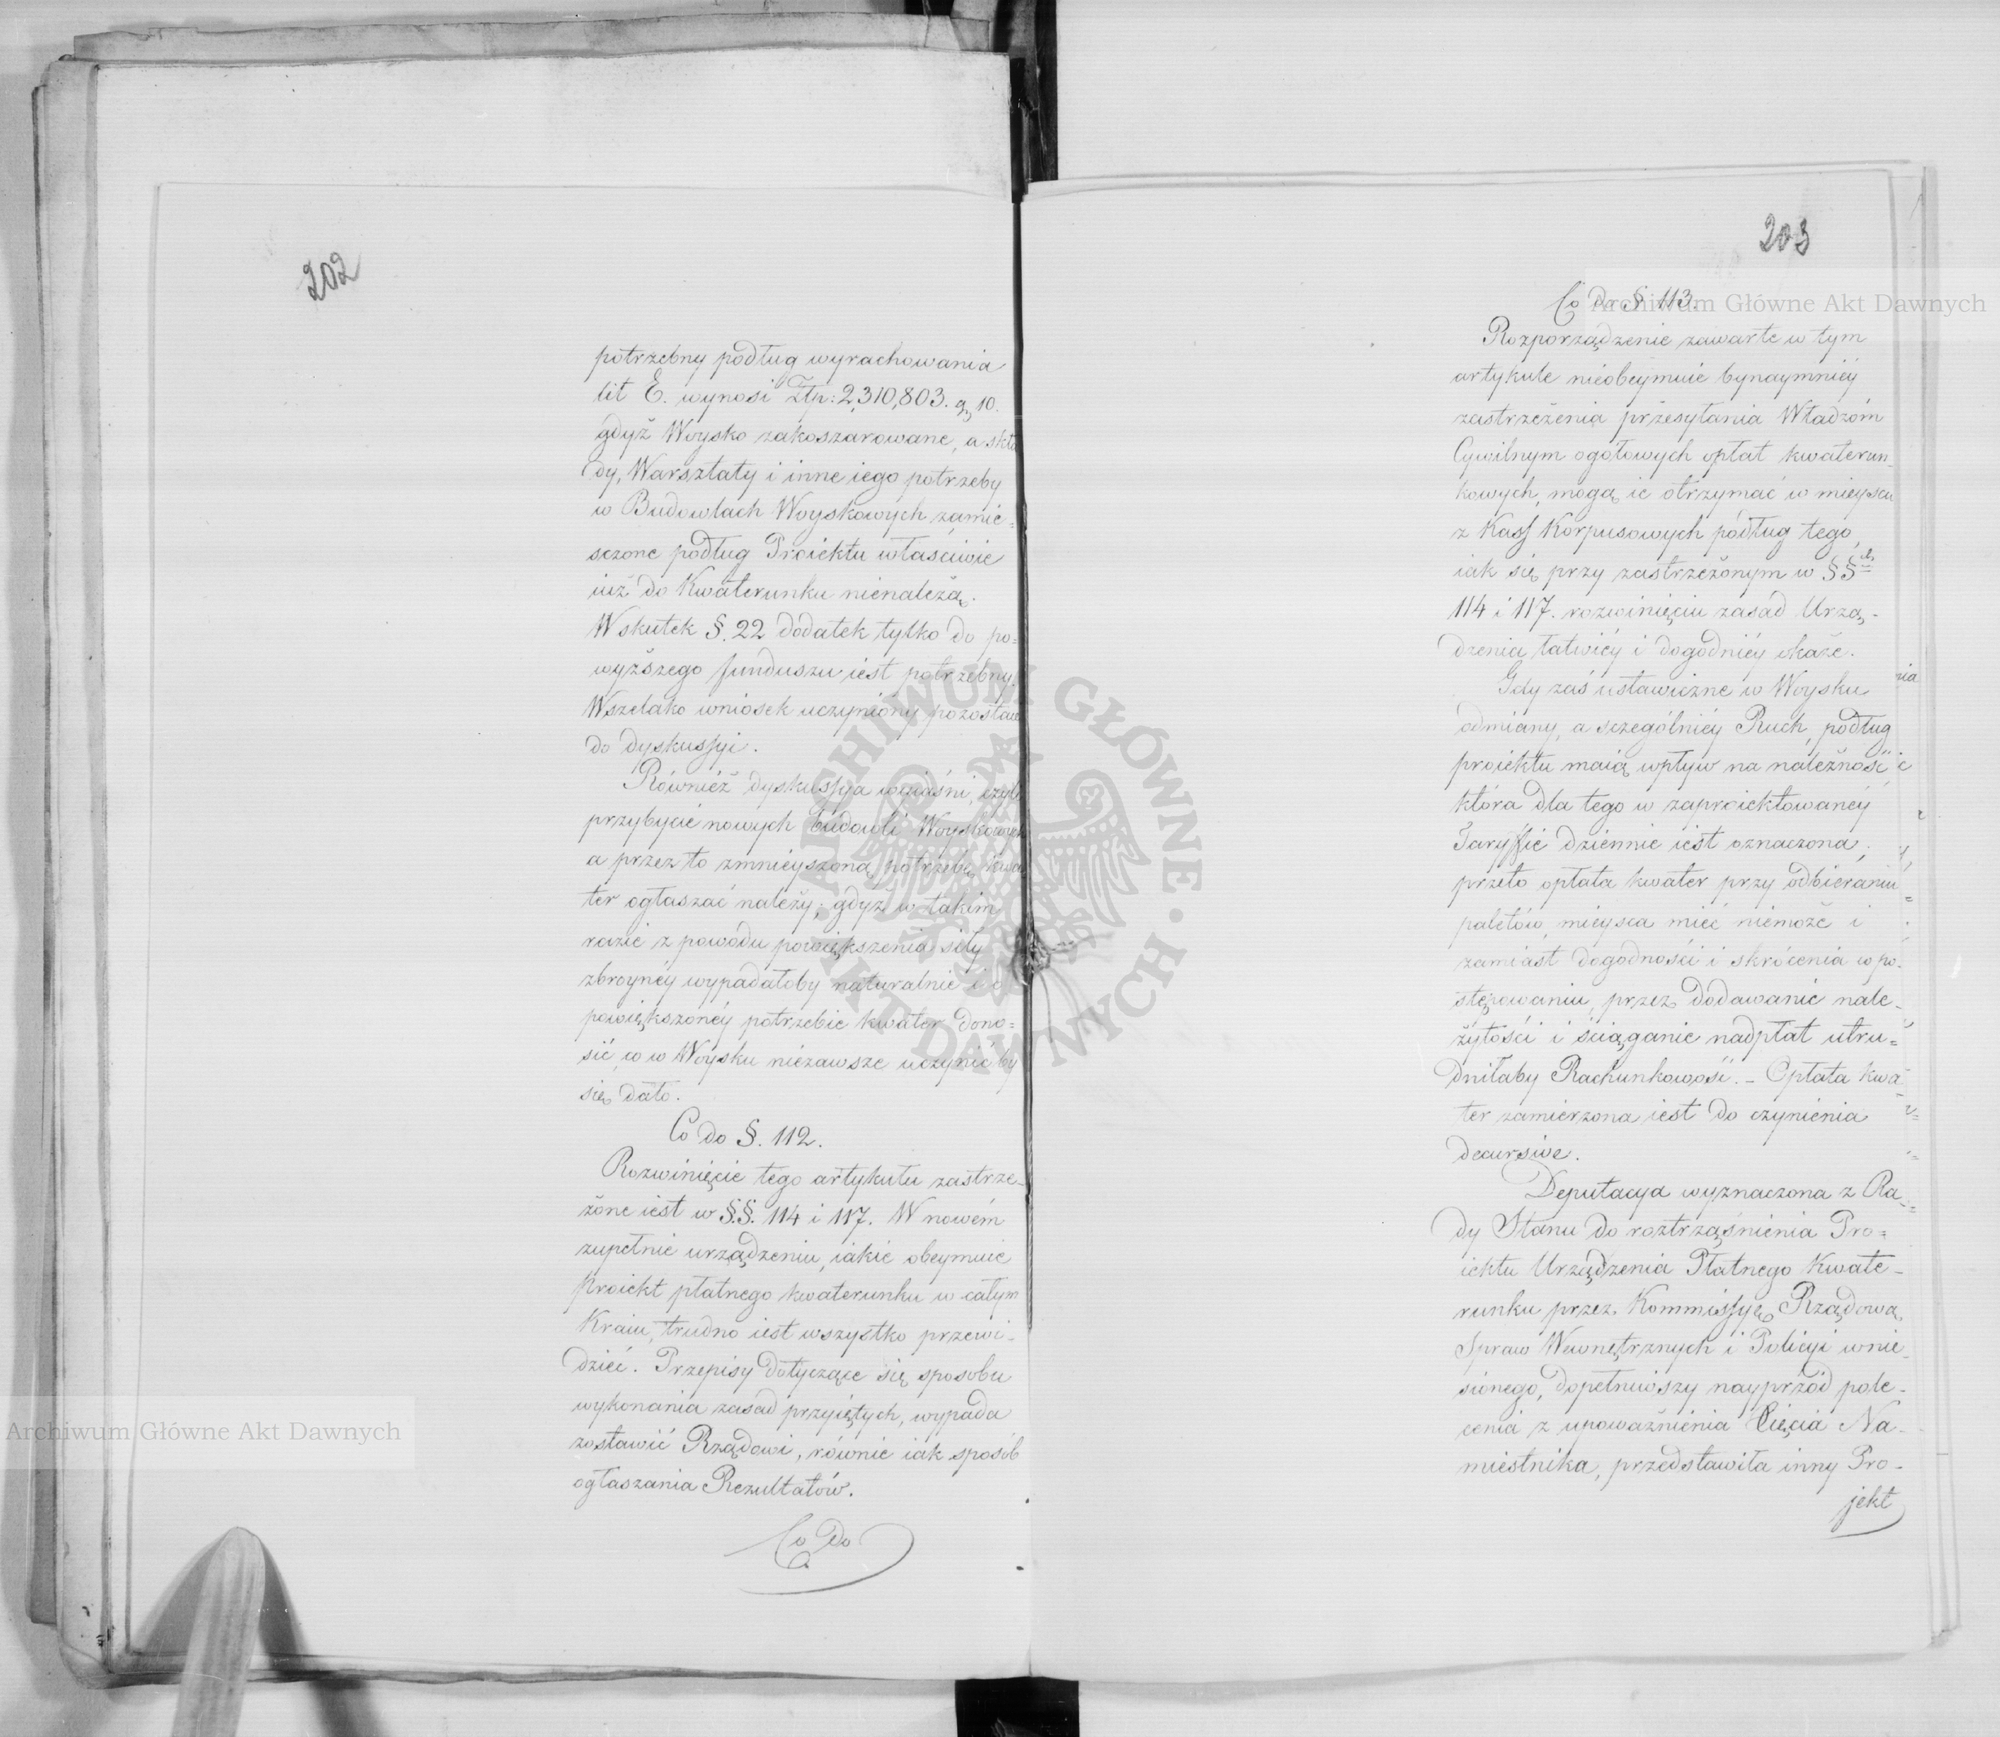 202
potrzebny podług wyrachowania
lit E. wynosi Złp: 2,310,803. gr 10.
gdyż Woysko zakoszarowane, a skła
dy, Warsztaty i inne iego potrzeby
w Budowlach Woyskowych zamie=
sczone podług Proiektu właściwie
iuż do Kwaterunku nienależą.
Wskutek §. 22 dodatek tylko do po=
wyższego funduszu iest potrzebny.
Wszelako wniosek uczyniony pozostaie
do dyskussyi.
Również dyskussya wyiaśni, czyli
przybycie nowych budowli Woyskowych
a przez to zmnieyszoną potrzebę kwa
ter ogłaszać należy; gdyż w takim
razie z powodu powiększenia siły
zbroynéy wypadałoby naturalnie i o
powiększonéy potrzebie kwater dono=
sić, co w Woysku niezawsze uczynić by
się dało.
Co do §. 112.
Rozwinięcie tego artykułu zastrze-
żone iest w §.§. 114 i 117. W nowém
zupełnie urządzeniu, iakie obeymuie
Proiekt płatnego kwaterunku w całym
Kraiu, trudno iest wszystko przewi-
dzieć. Przepisy dotyczące się sposobu
wykonania zasad przyiętych, wypada
zostawić Rządowi, równie iak sposób
ogłaszania Rezultatów.
Co do
203
Co do § 113.
Rozporządzenie zawarte w tym
artykule nieobeymuie bynaymniéy
zastrzeżenia przesyłania Władzóm
Cywilnym ogółowych opłat kwaterun-
kowych, mogą ie otrzymać w mieyscu
z Kass Korpusowych podług tego,
iak się przy zastrzeżonym w §§
114 i 117. rozwinięciu zasad Urzą-
dzenia łatwiéy i dogodniéy okaże.
Gdy zaś ustawiczne w Woysku
odmiany, a szczególniéy Ruch, podług
proiektu maią wpływ na należność
która dla tego w zaproiektowanéy
Taryffie dziennie iest oznaczona,
przeto opłata kwater przy odbieraniu
paletów, mieysca mieć niemoże i
zamiast dogodności i skrócenia w po-
stępowaniu, przez dodawanie nale-
żytości i ściąganie nadpłat utru=
dniłaby Rachunkowość. - Opłata kwa-
ter zamierzona iest do czynienia
decursive.
Deputacya wyznaczona z Ra-
dy Stanu do roztrząśnienia Pro=
iektu Urządzenia Płatnego Kwate-
runku przez Kommissyę Rządową
Spraw Wewnętrznych i Policyi wnie-
sionego, dopełniwszy nayprzód pole-
cenia z upoważnienia Xięcia Na-
miestnika, przedstawiła inny Pro-
jekt
Archiwum Główne Akt Dawnych
Archiwum Główne Akt Dawnych
ARCHIWUM GŁÓWNE AKT DAWNYCH